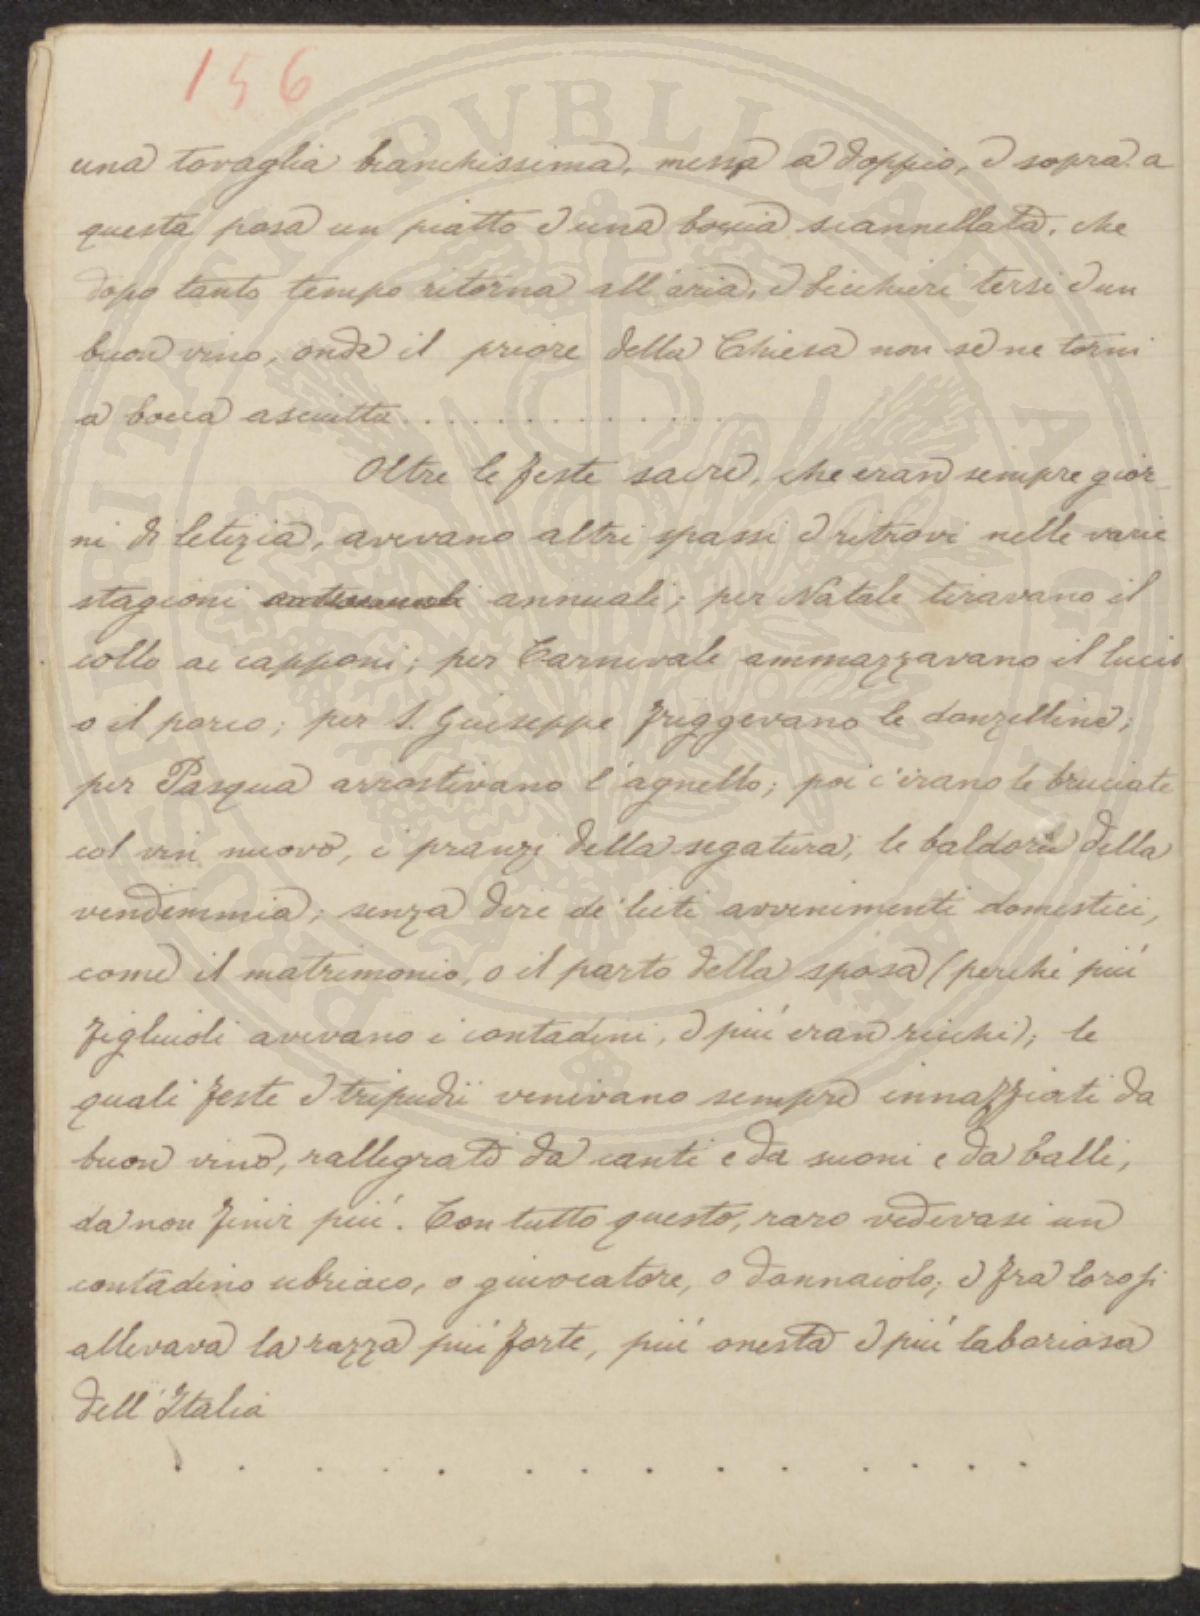 156
una tovaglia bianchissima, messa a doppio, e sopra a
questa posa un piatto e una boccia scannellata, che
dopo tanto tempo ritorna all'aria, e bicchieri tersi e un
buon vino, onde il priore della Chiesa non se ne torni
a bocca asciutta . . . . . . . . . . . . .
Oltre le feste sacre, che eran sempre gior-
ni di letizia, avevano altri spassi e ritrovi nelle varie
stagioni annuali; per Natale tiravano il
collo ai capponi; per Carnevale ammazzavano il lucio
o il porco; per S. Giuseppe friggevano le donzelline;
per Pasqua arrostivano l'agnello; poi c'erano le bruciate
col vin nuovo, i pranzi della segatura, le baldorie della
vendemmia; senza dire de' lieti avvenimenti domestici,
come il matrimonio, o il parto della sposa (perché più
figliuoli avevano i contadini, e più eran ricchi); le
quali feste e tripudii venivano sempre innaffiati da
buon vino, rallegrate da canti e da suoni e da balli,
da non finir più. Con tutto questo, raro vedevasi un
contadino ubriaco, o giuocatore, o donnaiolo; e fra loro si
allevava la razza più forte, più onesta e più laboriosa
dell'Italia
. . . . . . . . . . . . . .